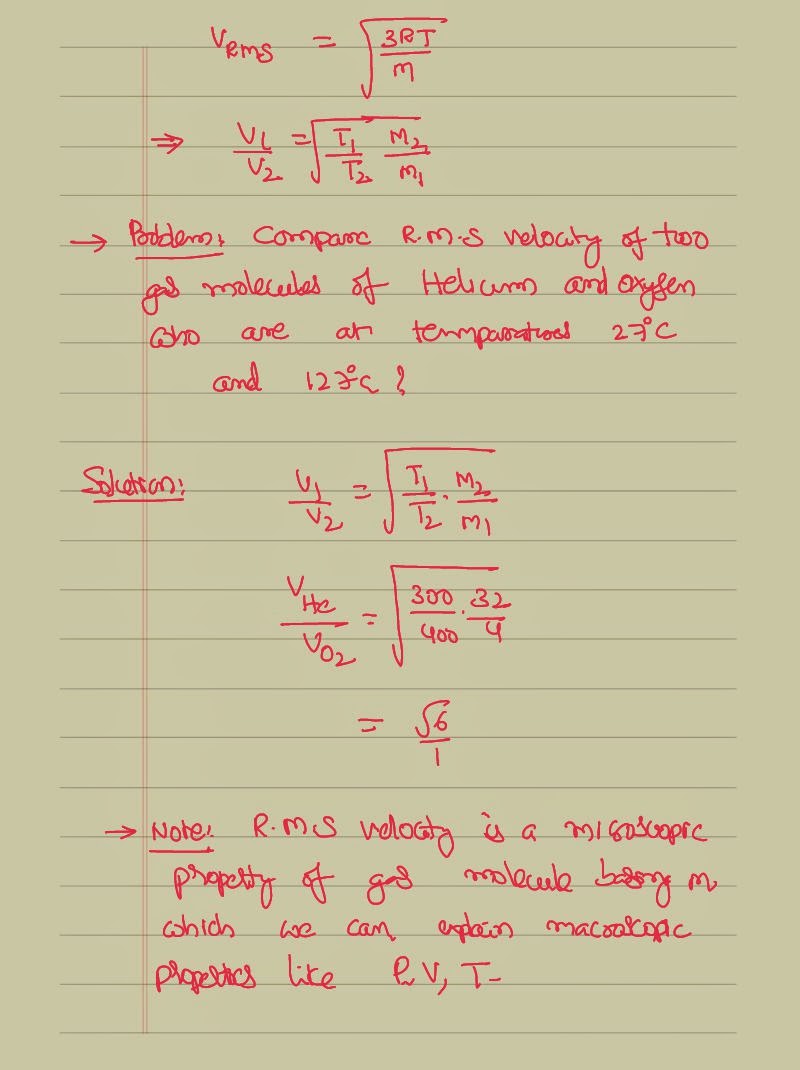 V_RMS = √(3RT/m)
⇒ V1/V2 = √(T1/T2 M2/m1)
→ Problem: Compare R.M.S velocity of two
gas molecules of Helium and oxygen
who are at temparatures 27°C
and 127°C ?
Solution: V1/V2 = √(T1/T2 . M2/m1)
V_He/V_O2 = √(300/400 . 32/4)
= √6/1
→ Note: R.M.S velocity is a microscopic
property of gas molecule basing on
which we can explain macroscopic
properties like P, V, T-